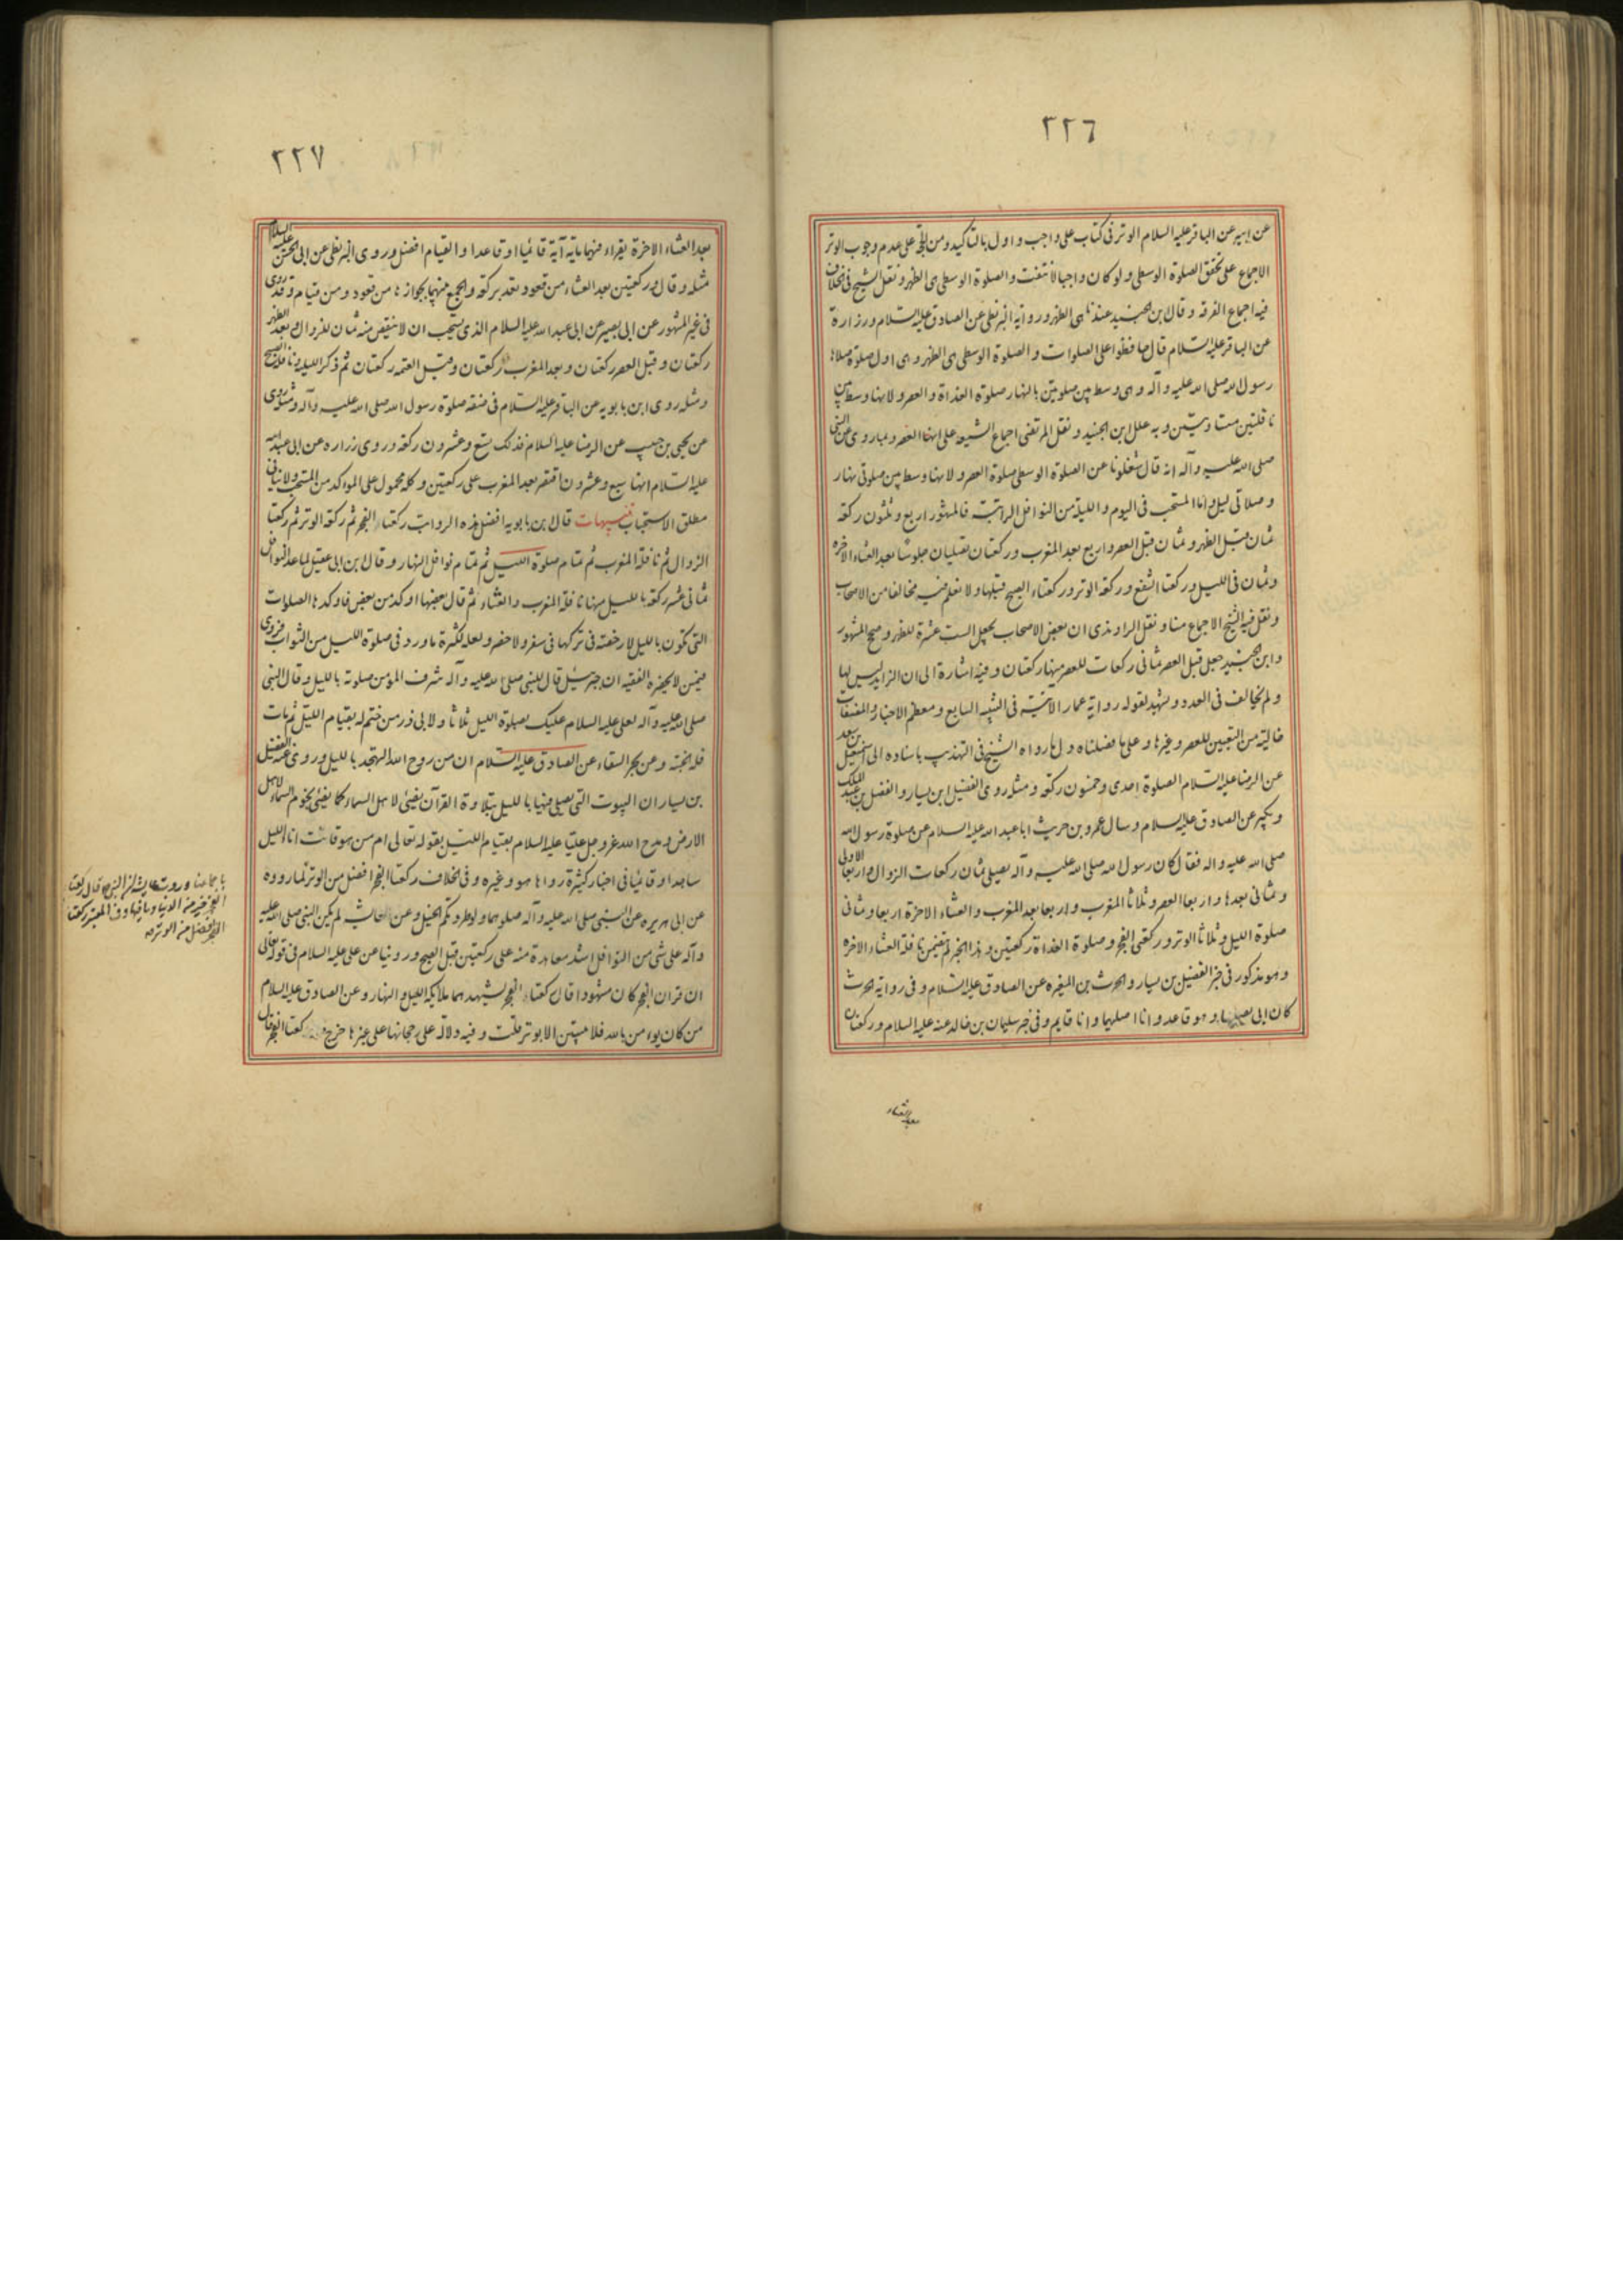 ٢٢٦
عن ابيه عن الباقر عليه السلام الوتر في كتاب علي واجب واول بالتاكيد ومن الحجة على عدم وجوب الوتر
الاجماع على تحقق الصلوة الوسطى ولو كان واجبا لانتفت والصلوة الوسطى هى الظهر ونقل الشيخ فى الخلاف
فيه اجماع الفرقه وقال بن الجنيد عندنا هى الظهر ورواية البزنطى عن الصادق عليه السلام وزرارة
عن الباقر عليه السلام قال حافظوا على الصلوات والصلوة الوسطى هى الظهر وهى اول صلوة صلاها
رسول الله صلى الله عليه وآله وهى وسط بين صلوتين بالنهار صلوة الغداة والعصر ولانها وسط بين
نافلتين متساويتين وبه علل ابن الجنيد ونقل المرتضى اجماع الشيعه على انها العصر وبما روى عن النبى
صلى الله عليه وآله انه قال شغلونا عن الصلوة الوسطى صلوة العصر ولانها وسط بين صلوتى نهار
وصلاتى ليل واما المستحب فى اليوم والليلة من النوافل الراتبة فالمشهور اربع وثلثون ركعة
ثمان قبل الظهر وثمان قبل العصر واربع بعد المغرب وركعتان تصليان جلوسا بعد العشاء الاخره
وثمان فى الليل وركعتا الشفع وركعة الوتر وركعتاء الصبح قبلها ولا نعلم فيه مخالفا من الاصحاب
ونقل فيه الشيخ الاجماع منا ونقل الراوندى ان بعض الاصحاب يجعل الست عشرة للظهر وصح المشهور
وابن الجنيد جعل قبل العصر ثمانى ركعات للعصر منها ركعتان وفيه اشارة الى ان الزايد ليس لها
ولم يخالف فى العدد ويشهد لقوله رواية عمار الآتية فى التنبيه السابع ومعظم الاخبار والمصنفات
خالية من التعيين للعصر وغيرها وعلى ما فصلناه دل ما رواه الشيخ فى التهذيب باسناده الى اسمعيل بن سعد
عن الرضا عليه السلام الصلوة احدى وخمسون ركعة ومثله روى الفضيل ابن يسار والفضل بن عبد الملك
وبكير عن الصادق عليه السلام وسال عمرو بن حريث ابا عبد الله عليه السلام عن صلوة رسول الله
صلى الله عليه واله فقال كان رسول الله صلى الله عليه وآله يصلى ثمان ركعات الزوال واربعا الاولى
وثمانى بعدها واربعا العصر وثلاثا المغرب واربعا بعد المغرب والعشاء الاخرة اربعا وثمانى
صلوة الليل وثلاثا الوتر وركعتى الفجر وصلوة الغداة ركعتين وهذا الخبر لم يتضمن نافلة العشاء الاخره
وهو مذكور فى خبر الفضيل بن يسار والحرث بن المغيره عن الصادق عليه السلام وفى رواية الحرث
كان ابى يصليها وهو قاعد وانا اصليها وانا قايم وفى خبر سليمان بن خالد عنه عليه السلام وركعتان
بعد العشاء
٢٢٧
بعد العشاء الاخرة يقراء فيهما مائة آية قائما او قاعدا والقيام افضل وروى البزنطى عن ابى الحسن عليه السلام
مثله وقال وركعتين بعد العشاء من قعود تعد بركعة والجمع بينهما بجوازها من قعود ومن قيام وقد روى
فى غير المشهور عن ابى بصير عن ابى عبد الله عليه السلام الذى يستحب ان لا ينقص منه ثمان للزوال وبعد الظهر
ركعتان وقبل العصر ركعتان وبعد المغرب ركعتان وقبل العتمه ركعتان ثم ذكر الليلية ونافلة الصبح
ومثله روى ابن بابويه عن الباقر عليه السلام فى صفة صلوة رسول الله صلى الله عليه وآله ومثله روى
عن يحيى بن حبيب عن الرضا عليه السلام فذلك تسع وعشرون ركعة وروى زراره عن ابى عبد الله
عليه السلام انها سبع وعشرون اقتصر بعد المغرب على ركعتين وكله محمول على الموكد من المستحب ولا ينافى
مطلق الاستحباب تنبيهات قال بن بابويه افضل هذه الرواتب ركعتا الفجر ثم ركعة الوتر ثم ركعتا
الزوال ثم نافلة المغرب ثم تمام صلوة الليل ثم تمام نوافل النهار وقال ابن ابى عقيل لما عد النوافل
ثمانى عشر ركعة بالليل منها نافلة المغرب والعشاء ثم قال بعضها اوكد من بعض فاوكدها الصلوات
التى تكون بالليل لا رخصة فى تركها فى سفر ولا حضر ولعله لكثرة ما ورد فى صلوة الليل من الثواب فروى
فيمن لا يحضره الفقيه ان جبرئيل قال للنبى صلى الله عليه وآله شرف المؤمن صلوته بالليل وقال النبى
صلى الله عليه وآله لعلى عليه السلام عليك بصلوة الليل ثلاثا ولابى ذر من ختم له بقيام الليل ثم مات
فله الجنة وعن بحر السقاء عن الصادق عليه السلام ان من روح الله التهجد بالليل وروى عنه الفضيل
بن يسار ان البيوت التى يصلى فيها بالليل بتلاوة القرآن يضئ لاهل السماء كما يضئ نجوم السماء لاهل
الارض ومدح الله عز وجل عليا عليه السلام بقيام الليل بقوله تعالى ام من هو قانت اناء الليل
ساجدا وقائما فى اخبار كثيرة رواها هو وغيره وفى الخلاف ركعتا الفجر افضل من الوتر لما رووه
عن ابى هريره عن النبى صلى الله عليه وآله صلوهما ولو طردتكم الخيل وعن عائشه لم يكن النبى صلى الله عليه
وآله على شئ من النوافل اشد معاهدة منه على ركعتين قبل الصبح وروينا عن على عليه السلام فى قوله تعالى
ان قران الفجر كان مشهودا قال ركعتا الفجر يشهدهما ملائكة الليل والنهار وعن الصادق عليه السلام
من كان يؤمن بالله فلا يبيتن الا بوتر قلت وفيه دلالة على رجحانها على غيرها خرج ركعتا الفجر
باجماعنا وروت عايشه ان النبى ص قال ركعتا
الفجر خير من الدنيا وما فيها وفى المعتبر ركعتا
الفجر افضل من الوتر